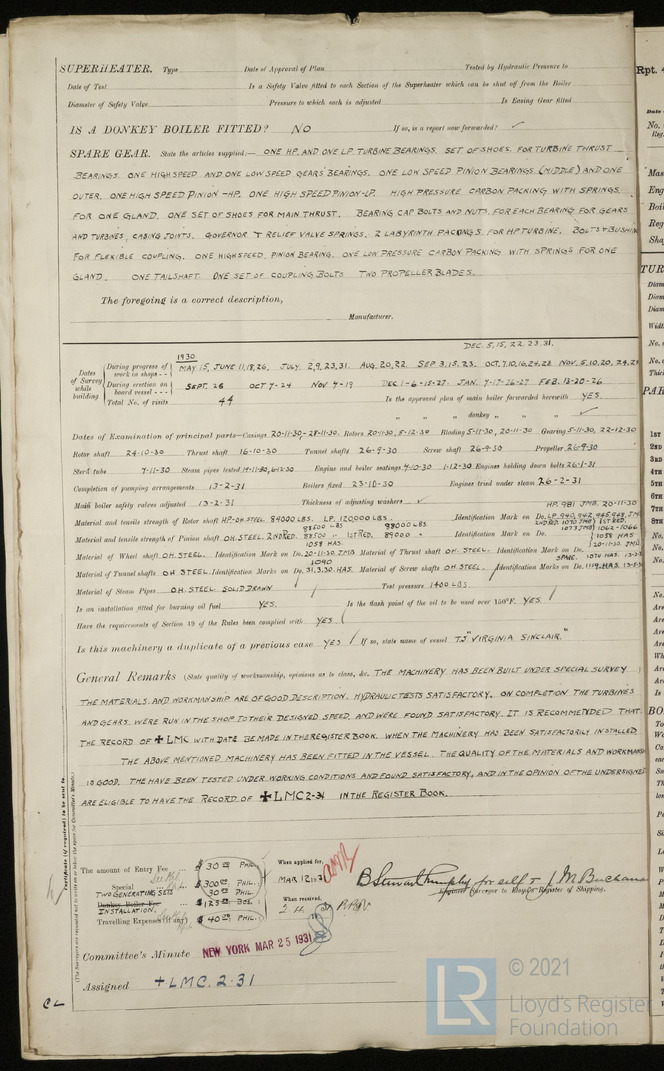 SUPERHEATER. Type Date of Approval of Plan Tested by Hydraulic Pressure to
Date of Test Is a Safety Valve fitted to each Section of the Superheater which can be shut off from the Boiler
Diameter of Safety Valve Pressure to which each is adjusted Is Easing Gear fitted
IS A DONKEY BOILER FITTED? NO If so, is a report now forwarded? ✓
SPARE GEAR. State the articles supplied:— ONE HP. AND ONE LP. TURBINE BEARINGS. SET OF SHOES. FOR TURBINE THRUST
BEARINGS. ONE HIGH SPEED AND ONE LOW SPEED GEARS BEARINGS. ONE LOW SPEED PINION BEARINGS (MIDDLE) AND ONE
OUTER. ONE HIGH SPEED PINION -HP. ONE HIGH SPEED PINION-LP. HIGH PRESSURE CARBON PACKING WITH SPRINGS
FOR ONE GLAND. ONE SET OF SHOES FOR MAIN THRUST. BEARING CAP BOLTS AND NUTS, FOR EACH BEARING FOR GEARS
AND TURBINES, CASING JOINTS. GOVERNOR & RELIEF VALVE SPRINGS. 2 LABYRINTH PACKINGS. FOR HP TURBINE. BOLTS & BUSHIN
FOR FLEXIBLE COUPLING. ONE HIGH SPEED. PINION BEARING. ONE LOW PRESSURE CARBON PACKING WITH SPRINGS FOR ONE
GLAND. ONE TAILSHAFT. ONE SET OF COUPLING BOLTS TWO PROPELLER BLADES.
The foregoing is a correct description,
Manufacturer.
DEC. 5, 15, 22. 23. 31.
1930
Dates of Survey while building
During progress of work in shops - - MAY 15, JUNE 11, 18, 26, JULY. 2, 9, 23, 31. AUG. 20, 22. SEP 3, 15. 23. OCT. 7, 10, 16, 24, 28 NOV. 5, 10, 20, 24, 25
During erection on board vessel - - - SEPT. 28 OCT 7-24 NOV 7-19 DEC 1-6-15-27. JAN. 7-17-26-27 FEB. 13-20-26
Total No. of visits 44 Is the approved plan of main boiler forwarded herewith YES.
" " " donkey " " " ✓
Dates of Examination of principal parts—Casings 20-11-30, -28-11-30. Rotors 20-11-30, 5-12-30 Blading 5-11-30, 20-11-30 Gearing 5-11-30, 22-12-30
Rotor shaft 24-10-30 Thrust shaft 16-10-30 Tunnel shafts 26-9-30 Screw shaft 26-9-30 Propeller 26-9-30
Stern tube 7-11-30 Steam pipes tested 14-11-30, 6-12-30 Engine and boiler seatings 7-10-30 1-12-30 Engines holding down bolts 26-1-31
Completion of pumping arrangements 13-2-31 Boilers fixed 23-10-30 Engines tried under steam 26-2-31
Main boiler safety valves adjusted 13-2-31 Thickness of adjusting washers ✓
HP. 981 JMB. 20-11-30
Material and tensile strength of Rotor shaft HP-OH STEEL. 84000 LBS. LP. 120000 LBS. Identification Mark on Do. LP. 940, 942, 945, 948, JM
88500 LBS 88000 LBS 2ND RED. 1070 JMB 1ST RED.
Material and tensile strength of Pinion shaft OH. STEEL. 2ND RED. 88500 " 1ST RED. 89000 " Identification Mark on Do. 1073 JMB 1062-1066
1058 HAS. 1058 HAS
Material of Wheel shaft OH. STEEL. Identification Mark on Do. 20-11-30. JMB Material of Thrust shaft OH. STEEL. Identification Mark on Do. 20-11-30. JMB
1040 SPARE. 1070 HAS.
Material of Tunnel shafts OH STEEL. Identification Marks on Do. 31.3.30. HAS Material of Screw shafts OH STEEL. Identification Marks on Do. 1119. HAS.
Material of Steam Pipes OH. STEEL. SOLID DRAWN Test pressure 1400 LBS.
Is an installation fitted for burning oil fuel YES. Is the flash point of the oil to be used over 150°F. YES
Have the requirements of Section 49 of the Rules been complied with YES
Is this machinery a duplicate of a previous case YES If so, state name of vessel TS "VIRGINIA SINCLAIR."
General Remarks (State quality of workmanship, opinions as to class, &c. THE MACHINERY HAS BEEN BUILT UNDER SPECIAL SURVEY
THE MATERIALS. AND WORKMANSHIP ARE OF GOOD DESCRIPTION. HYDRAULIC TESTS SATISFACTORY. ON COMPLETION THE TURBINES
AND GEARS. WERE RUN IN THE SHOP TO THEIR DESIGNED SPEED. AND WERE FOUND SATISFACTORY. IT IS RECOMMENDED THAT.
THE RECORD OF ✠LMC WITH DATE BE MADE IN THE REGISTER BOOK. WHEN THE MACHINERY HAS BEEN SATISFACTORILY INSTALLED
THE ABOVE MENTIONED MACHINERY HAS BEEN FITTED IN THE VESSEL. THE QUALITY OF THE MATERIALS AND WORKMANS
IS GOOD. THE HAVE BEEN TESTED UNDER WORKING CONDITIONS AND FOUND SATISFACTORY, AND IN THE OPINION OF THE UNDERSIGNED
ARE ELIGIBLE TO HAVE THE RECORD OF ✠LMC 2-31 IN THE REGISTER BOOK.
Certificate (if required) to be sent to
(The Surveyors are requested not to write on or below the space for Committee's Minute.)
The amount of Entry Fee ... $ 30.00 PHIL. When applied for,
Special ... $300.00 PHIL. MAR 12 1931
TWO GENERATING SETS 30.00 PHIL.
Donkey Boiler Fee $125.00 BOS. When received,
INSTALLATION.
Travelling Expenses (if any) $ 40.00 PHIL.
for self & J M Buchanan
Surveyor to Lloyd's Register of Shipping.
Committee's Minute NEW YORK MAR 25 1931
Assigned +LMC. 2.31
CL
© 2021
Lloyd's Register
Foundation
LR
Rpt. 4